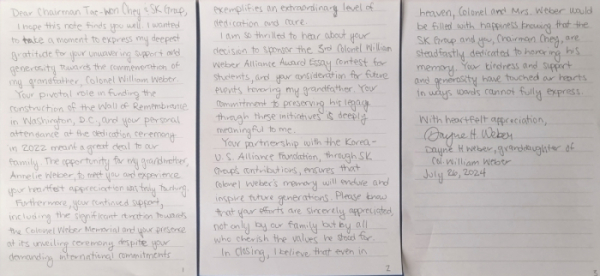 Dear Chairman Tae-won Chey & SK Group,
I hope this note finds you well. I wanted
to take a moment to express my deepest
gratitude for your unwavering support and
generosity towards the commemoration of
my grandfather, Colonel William Weber.
Your pivotal role in funding the
construction of the Wall of Remembrance
in Washington, D.C., and your personal
attendance at the dedication ceremony
in 2022 meant a great deal to our
family. The opportunity for my grandmother,
Annelie Weber, to meet you and experience
your heartfelt appreciation was truly touching.
Furthermore, your continued support,
including the significant donation towards
the Colonel Weber Memorial and your presence
at its unveiling ceremony despite your
demanding international commitments
1
exemplifies an extraordinary level of
dedication and care.
I am so thrilled to hear about your
decision to sponsor the 3rd Colonel William
Weber Alliance Award Essay Contest for
students, and your consideration for future
events honoring my grandfather. Your
commitment to preserving his legacy
through these initiatives is deeply
meaningful to me.
Your partnership with the Korea-
U.S. Alliance Foundation, through SK
Group's contributions, ensures that
Colonel Weber's memory will endure and
inspire future generations. Please know
that your efforts are sincerely appreciated
not only by our family but by all
who cherish the values he stood for.
In closing, I believe that even in
2
heaven, Colonel and Mrs. Weber would
be filled with happiness knowing that the
SK Group and you, Chairman Chey, are
steadfastly dedicated to honoring his
memory. Your kindness and support
and generosity have touched our hearts
in ways words cannot fully express.
With heartfelt appreciation,
Dayne H. Weber
Dayne H Weber, granddaughter of
Col William Weber
July 26, 2024